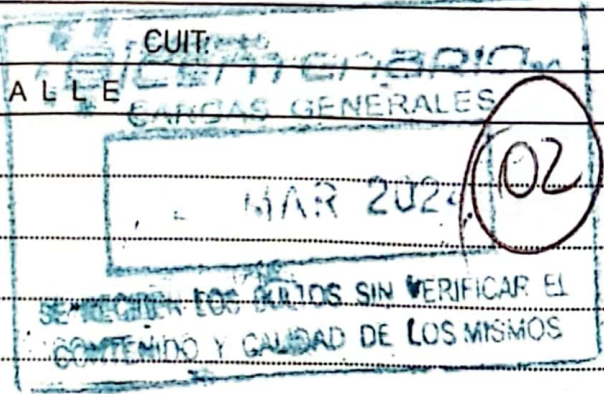 CUIT:
ALLE
CARGAS GENERALES
MAR 202
02
SE RECIBEN LOS BULTOS SIN VERIFICAR EL
CONTENIDO Y CALIDAD DE LOS MISMOS